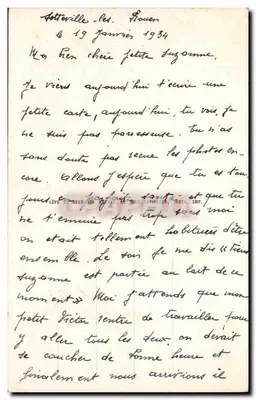 Sotteville-les-Rouen
le 19 Janvier 1934
Ma bien chère petite Suzanne,
Je viens aujourd'hui t'écrire une
petite carte, aujourd'hui, tu vois, je
ne suis pas paresseuse. Tu n'as
sans doute pas reçue les photos en-
core. Allons j'espère que tu es tou
jours santé et que tu
ne t'ennuie pas trop sans moi
on était tellement habituées d'être
ensemble. Le soir je me dis "tiens
Suzanne est partie au lait de ce
moment" Moi j'attends que mon
petit Victor rentre de travailler pour
y aller tous les deux on devait
se coucher de bonne heure et
finalement nous arrivions il